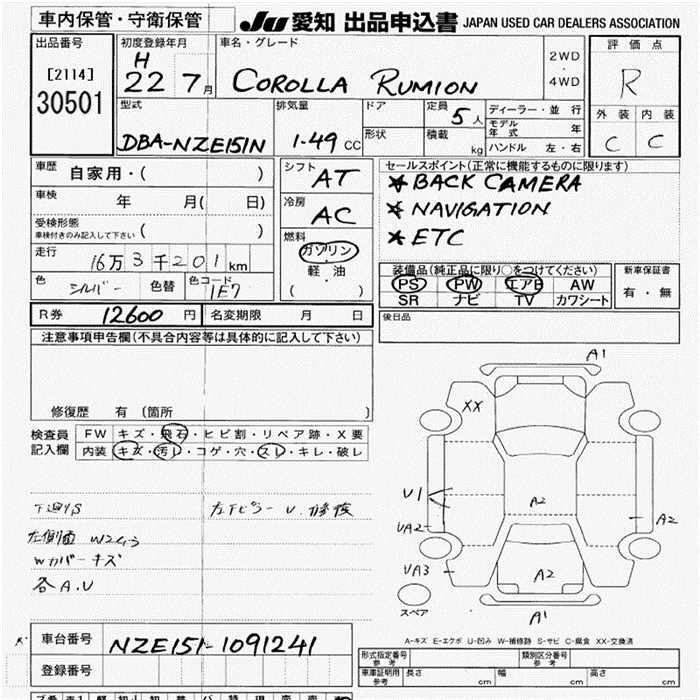 車内保管・守衛保管
JU 愛知 出品申込書 JAPAN USED CAR DEALERS ASSOCIATION
出品番号
[2114]
30501
初度登録年月
H
22 7月
車名・グレード
COROLLA RUMION
2WD
・
4WD
評価点
R
外装 内装
C C
型式
DBA-NZE151N
排気量
1.49 CC
ドア
形状
定員 5人
積載 kg
ディーラー・並行
モデル年式 年
ハンドル 左・右
車歴 自家用・( )
車検 年 月( 日)
受検形態
車検付きのみ記入して下さい ( )
走行 16万3千201km
色 シルバー 色替 色コード 1E7
シフト AT
冷房 AC
燃料
ガソリン
・
軽油
( )
セールスポイント(正常に機能するものに限ります)
★BACK CAMERA
★NAVIGATION
★ETC
装備品(純正品に限り○をつけてください)
PS PW エアB AW
SR ナビ TV カワシート
新車保証書
有・無
R券 12600円 名変期限 月 日
後日品
注意事項申告欄(不具合内容等は具体的に記入して下さい)
修復歴 有(箇所 )
検査員
記入欄
FW キズ・飛石・ヒビ割・リペア跡・X要
内装 キズ・汚レ・コゲ・穴・スレ・キレ・破レ
下廻りS 左Fピラー U. 修復
左側面 W2
Wカバーキズ
各A.U
A1
XX
U1
A2
UA2
A2
UA3
A2
A1
スペア
A-キズ E-エクボ U-凹み W-補修跡 S-サビ C-腐食 XX-交換済
車台番号 NZE151-1091241
登録番号
形式指定番号
参考
類別区分番号
参考
車庫証明用
参考
長さ cm 幅 cm 高さ cm